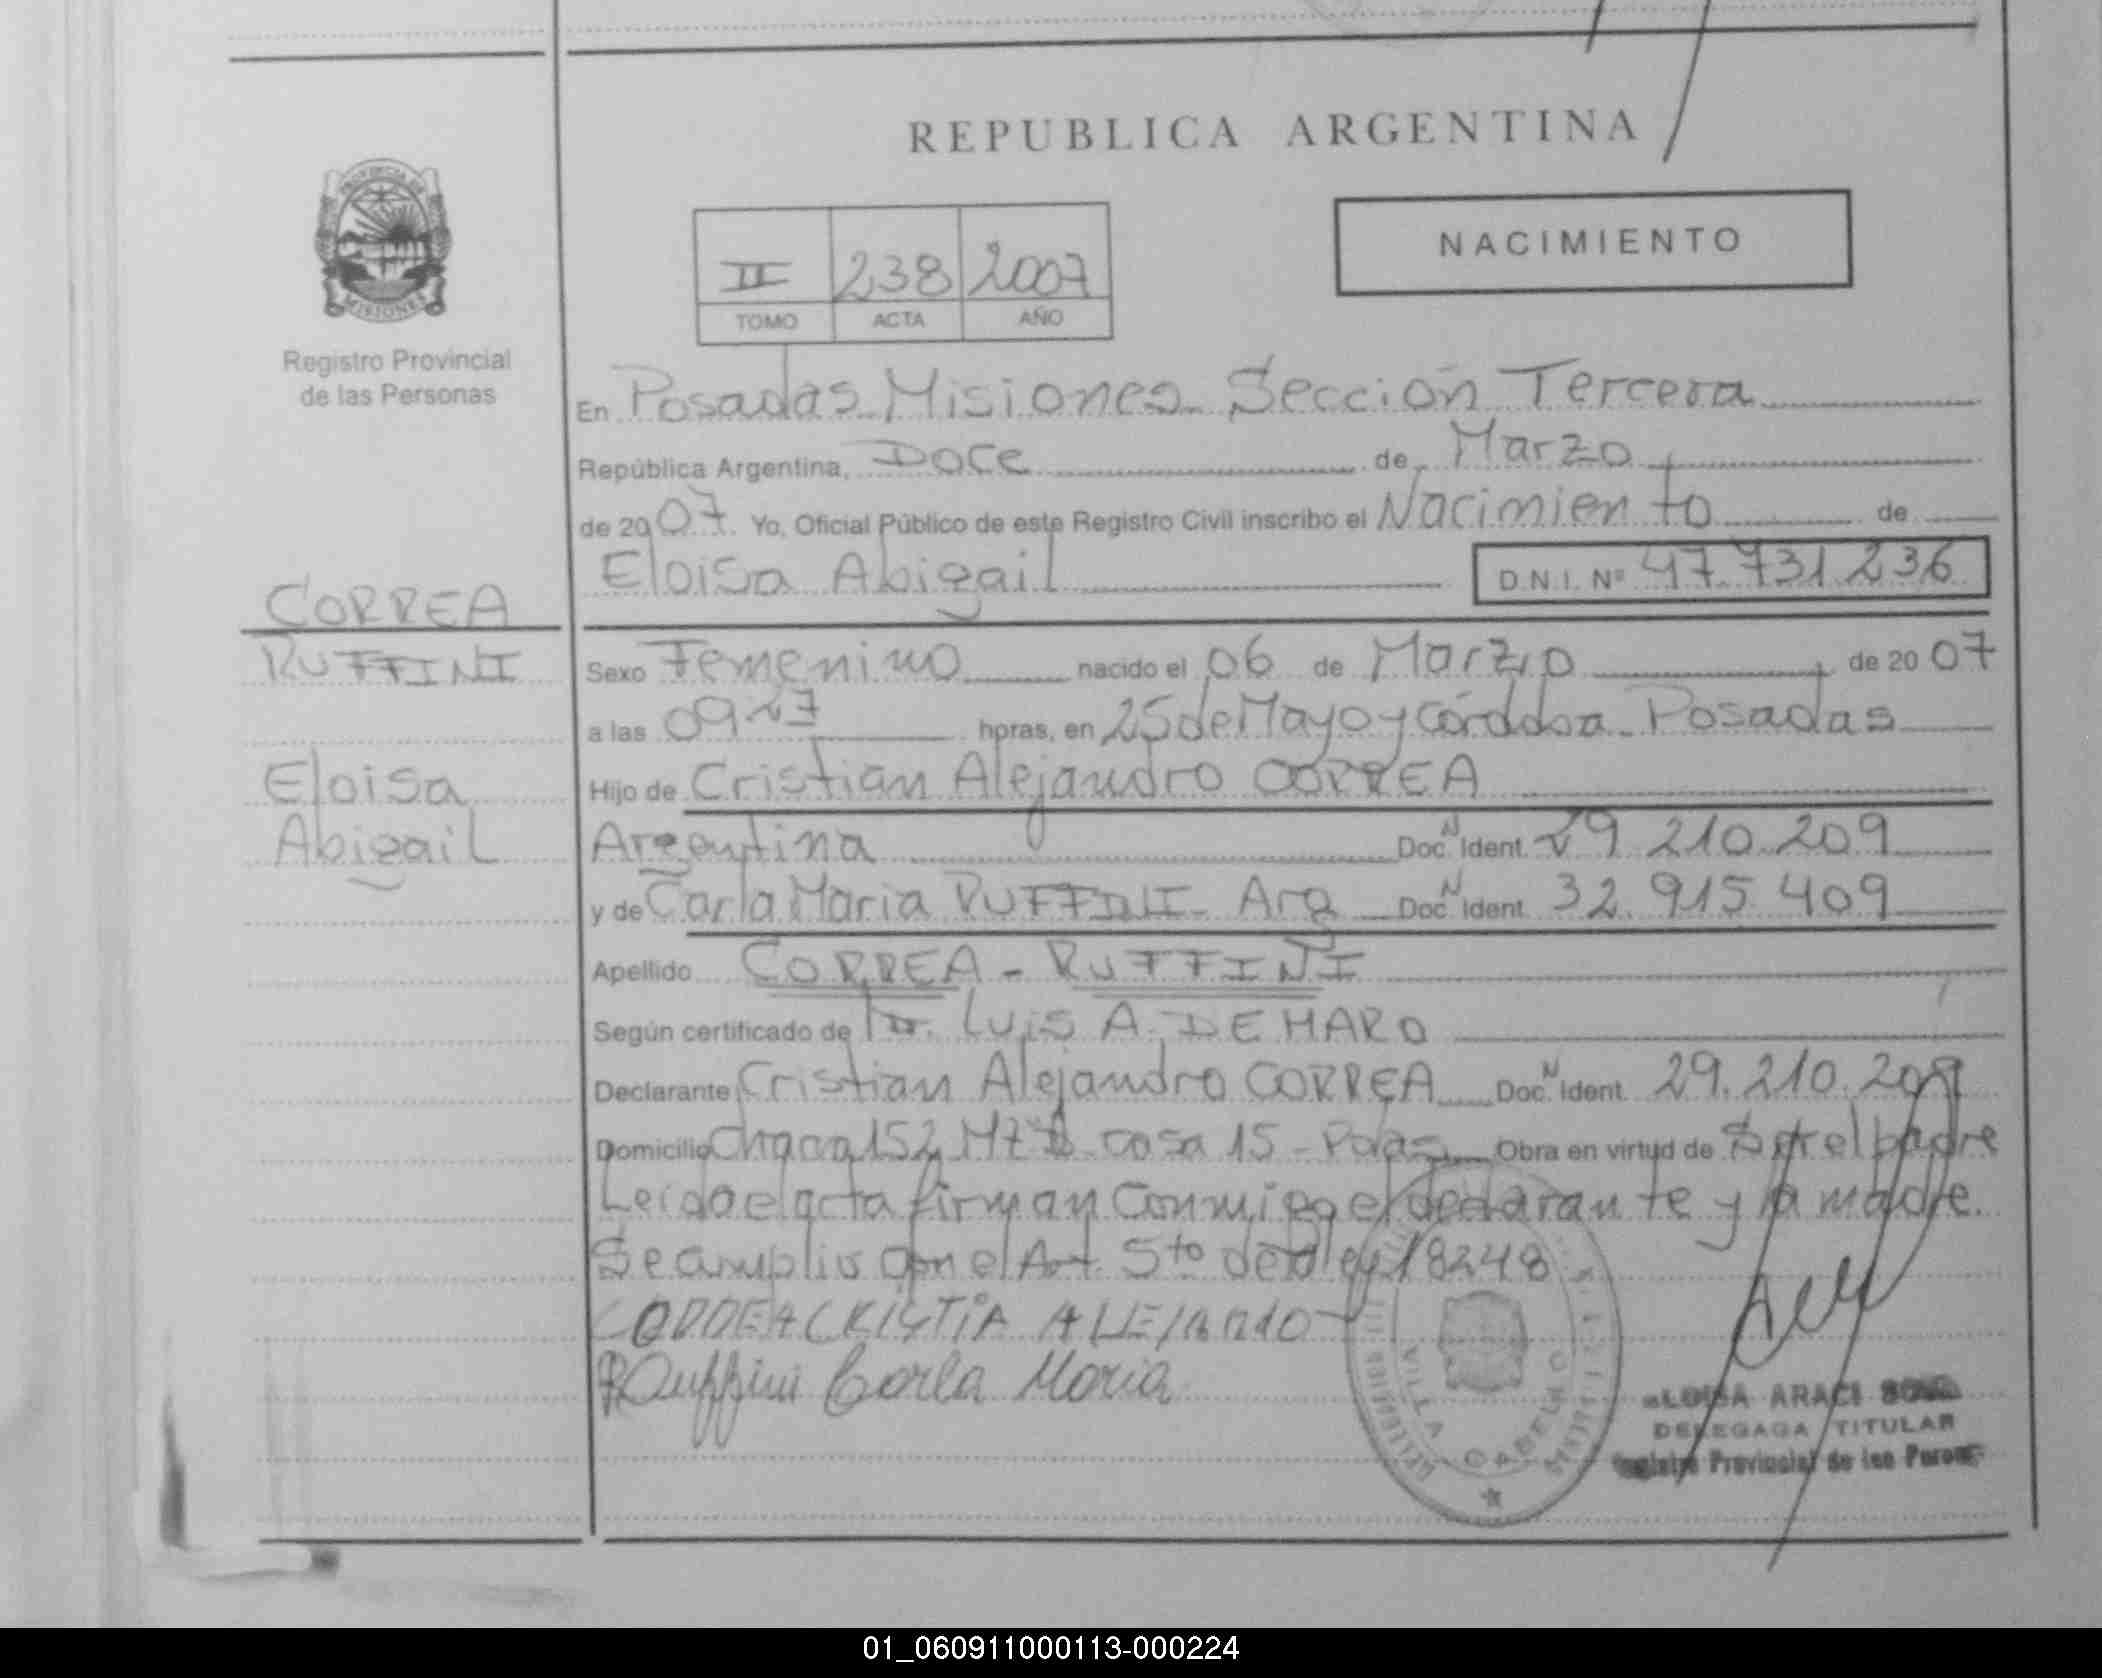 REPUBLICA ARGENTINA
PROVINCIA DE
MISIONES
Registro Provincial
de las Personas
NACIMIENTO
II 238 2007
TOMO ACTA AÑO
En Posadas Misiones Sección Tercera
República Argentina, Doce de Marzo
de 2007. Yo, Oficial Público de este Registro Civil inscribo el Nacimiento de
Eloisa Abigail D.N.I. Nº 47.731.236
CORREA
RUFFINI
Eloisa
Abigail
Sexo Femenino nacido el 06 de Marzo de 2007
a las 09 27 horas, en 25 de Mayo y Córdoba - Posadas
Hijo de Cristian Alejandro CORREA
Argentina Doc. N Ident. 29.210.209
y de Carla Maria RUFFINI - Arg Doc. N Ident. 32.915.409
Apellido CORREA - RUFFINI
Según certificado de Dr. Luis A. DEMARO
Declarante Cristian Alejandro CORREA Doc. N Ident. 29.210.209
Domicilio Chacra 152 Mz casa 15 - Pdas Obra en virtud de Ser el padre
Leida el acta firman Conmigo el declarante y la madre.
Se amplio con el Art. 5to de la ley 18248
CORREA CRISTIA ALEJANDRO
Ruffini Carla Maria
VILLA CABELLO
ELOISA ARACI
DELEGADA TITULAR
Registro Provincial de las Personas
01_060911000113-000224